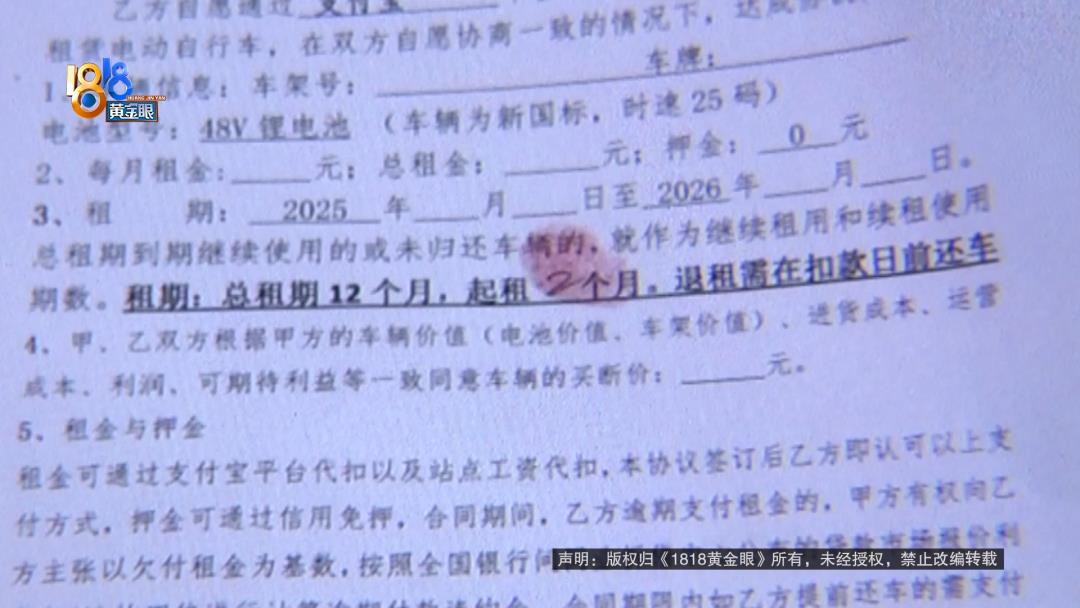 乙方自愿通过 支付宝
租赁电动自行车，在双方自愿协商一致的情况下，达成
1 信息：车架号： 车牌：
电池型号：48V 锂电池 （车辆为新国标，时速 25 码）
2、每月租金：______元；总租金：______元；押金：__0__元
3、租 期：__2025__年____月____日至 2026 年____月____日。
总租期到期继续使用的或未归还车辆的，就作为继续租用和续租使用
期数。租期：总租期 12 个月，起租 2个月。退租需在扣款日前还车
4、甲、乙双方根据甲方的车辆价值（电池价值、车架价值）、进货成本、运营
成本、利润、可期待利益等一致同意车辆的买断价：______元。
5、租金与押金
租金可通过支付宝平台代扣以及站点工资代扣，本协议签订后乙方即认可以上支
付方式，押金可通过信用免押，合同期间，乙方逾期支付租金的，甲方有权向乙
方主张以欠付租金为基数，按照全国银行间
合同期限内如乙方提前还车的需支付
1818
HUANG JIN YAN
黄金眼
声明：版权归《1818黄金眼》所有，未经授权，禁止改编转载